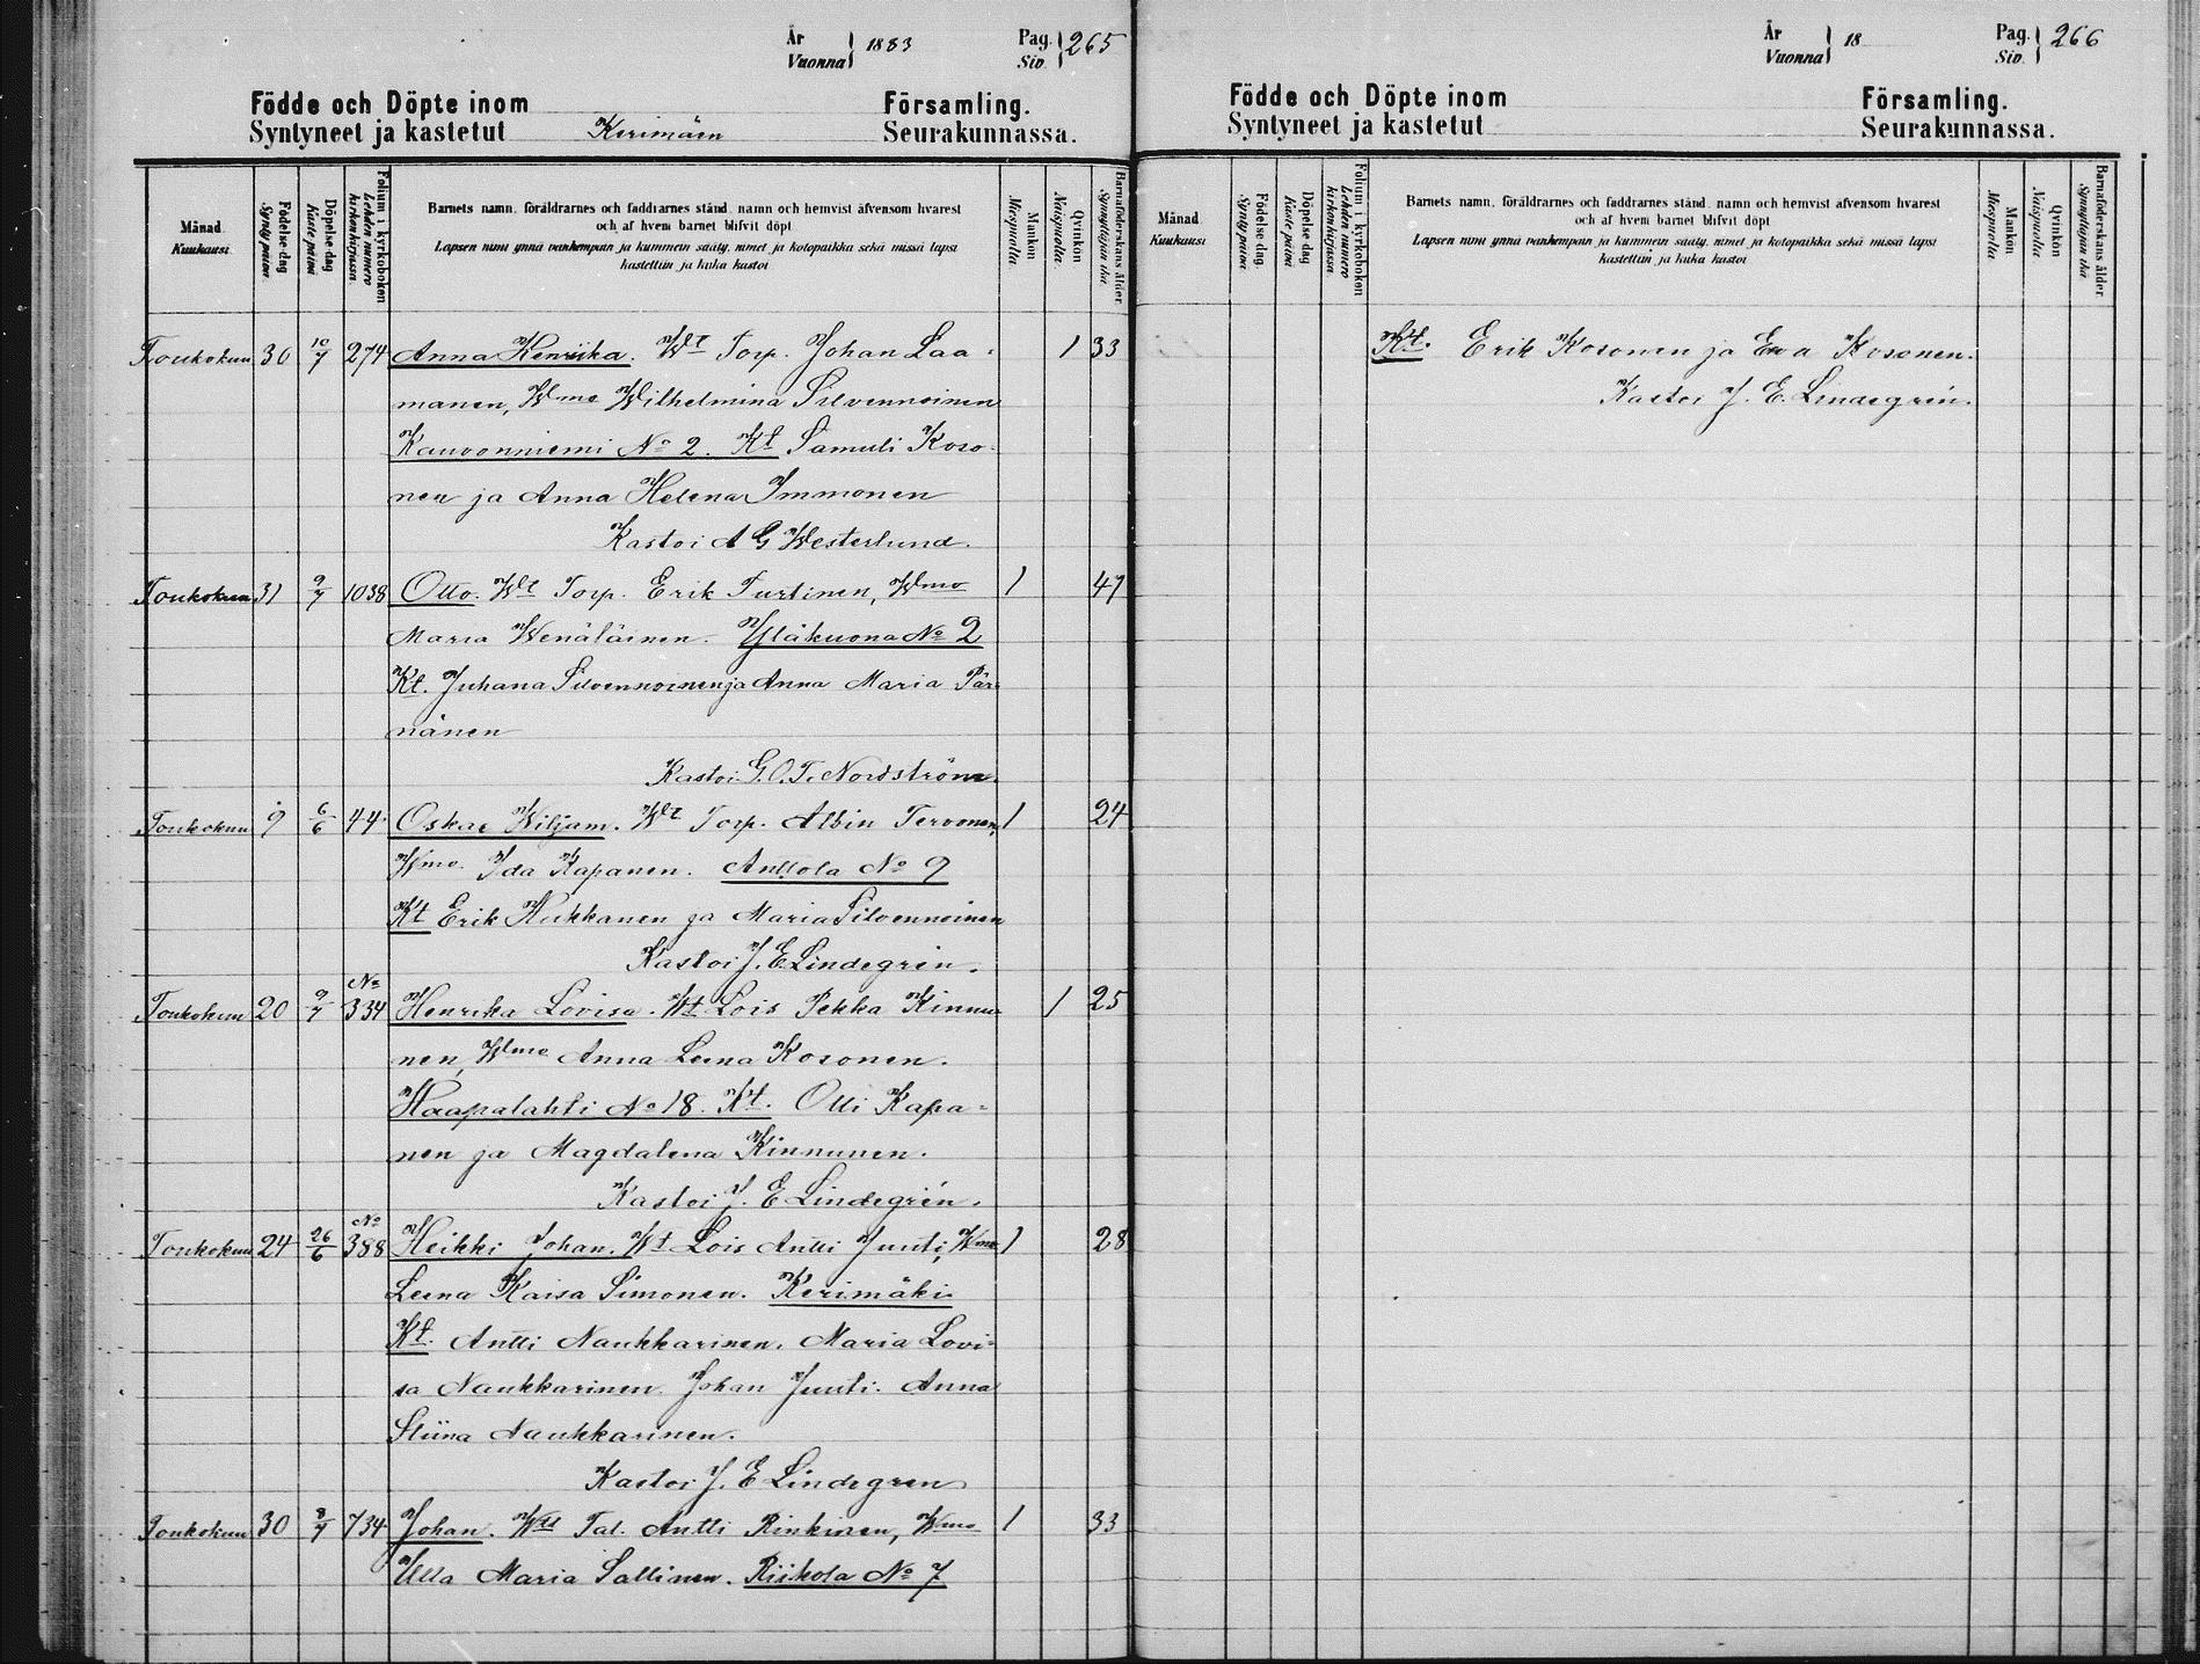 År Vuonna } 1883 Pag. Siv. } 265
Födde och Döpte inom Församling.
Syntyneet ja kastetut Kerimäen Seurakunnassa.
Månad Kuukausi
Födelse-dag Synty-päivä
Döpelse dag Kaste päivä
Folium i kyrkoboken Lehden numero kirkonkirjassa
Barnets namn, föräldrarnes och faddrarnes stånd, namn och hemvist äfvensom hvarest
och af hvem barnet blifvit döpt
Lapsen nimi ynnä vanhempain ja kummein sääty, nimet ja kotopaikka sekä missä lapsi
kastettiin ja kuka kastoi
Mankön Miespuolta
Qvinkön Naispuolta
Barnaföderskans ålder Synnyttäjän ikä
Toukokuu 30 10/7 274 Anna Henriika. Wt Torp. Johan Laa- 1 33
manen, Wmo Wilhelmina Silvennoinen
Kauvonniemi No 2. Kt Samuli Koso-
nen ja Anna Helena Immonen
Kastoi A G Westerlund.
Toukokuu 31 9/7 1038 Otto. Wt Torp. Erik Turtinen, Wmo 1 47
Maria Wenäläinen. Yläkuona No 2
Kt. Juhana Silvennoinen ja Anna Maria Pär-
nänen
Kastoi G.O.T. Nordström.
Toukokuu 9 6/6 44 Oskar Wiljam. Wt Torp. Albin Tervonen, 1 24
Wmo Ida Kapanen. Anttola No 9
Kt Erik Hukkanen ja Maria Silvennoinen
Kastoi J. E. Lindegrén.
Toukokuu 20 9/7 No 334 Henrika Lovisa. Wt Lois Pekka Kinnu- 1 25
nen, Wmo Anna Leena Kosonen.
Haapalahti No 18. Kt. Olli Kapa-
nen ja Magdalena Kinnunen.
Kastoi J. E Lindegrén.
Toukokuu 24 26/6 No 388 Heikki Johan. Wt Lois Antti Juuti, Wmo 1 28
Leena Kaisa Simonen. Kerimäki
Kt. Antti Naukkarinen. Maria Lovi-
sa Naukkarinen. Johan Juuti. Anna
Stiina Naukkarinen.
Kastoi J. E Lindegren
Toukokuu 30 8/7 734 Johan. Wt Tal. Antti Rinkinen, Wmo 1 33
Ulla Maria Sallinen. Riikola No 7
År Vuonna } 18 Pag. Siv. } 266
Födde och Döpte inom Församling.
Syntyneet ja kastetut Seurakunnassa.
Månad Kuukausi
Födelse-dag Synty päivä
Döpelse dag Kaste päivä
Folium i kyrkoboken Lehden numero kirkonkirjassa
Barnets namn, föräldrarnes och faddrarnes stånd, namn och hemvist äfvensom hvarest
och af hvem barnet blifvit döpt
Lapsen nimi ynnä vanhempain ja kummein sääty, nimet ja kotopaikka sekä missä lapsi
kastettiin ja kuka kastoi
Mankön Miespuolta
Qvinkön Naispuolta
Barnaföderskans ålder Synnyttäjän ikä
Kt. Erik Kosonen ja Eva Kosonen.
Kastoi J. E. Lindegrén.